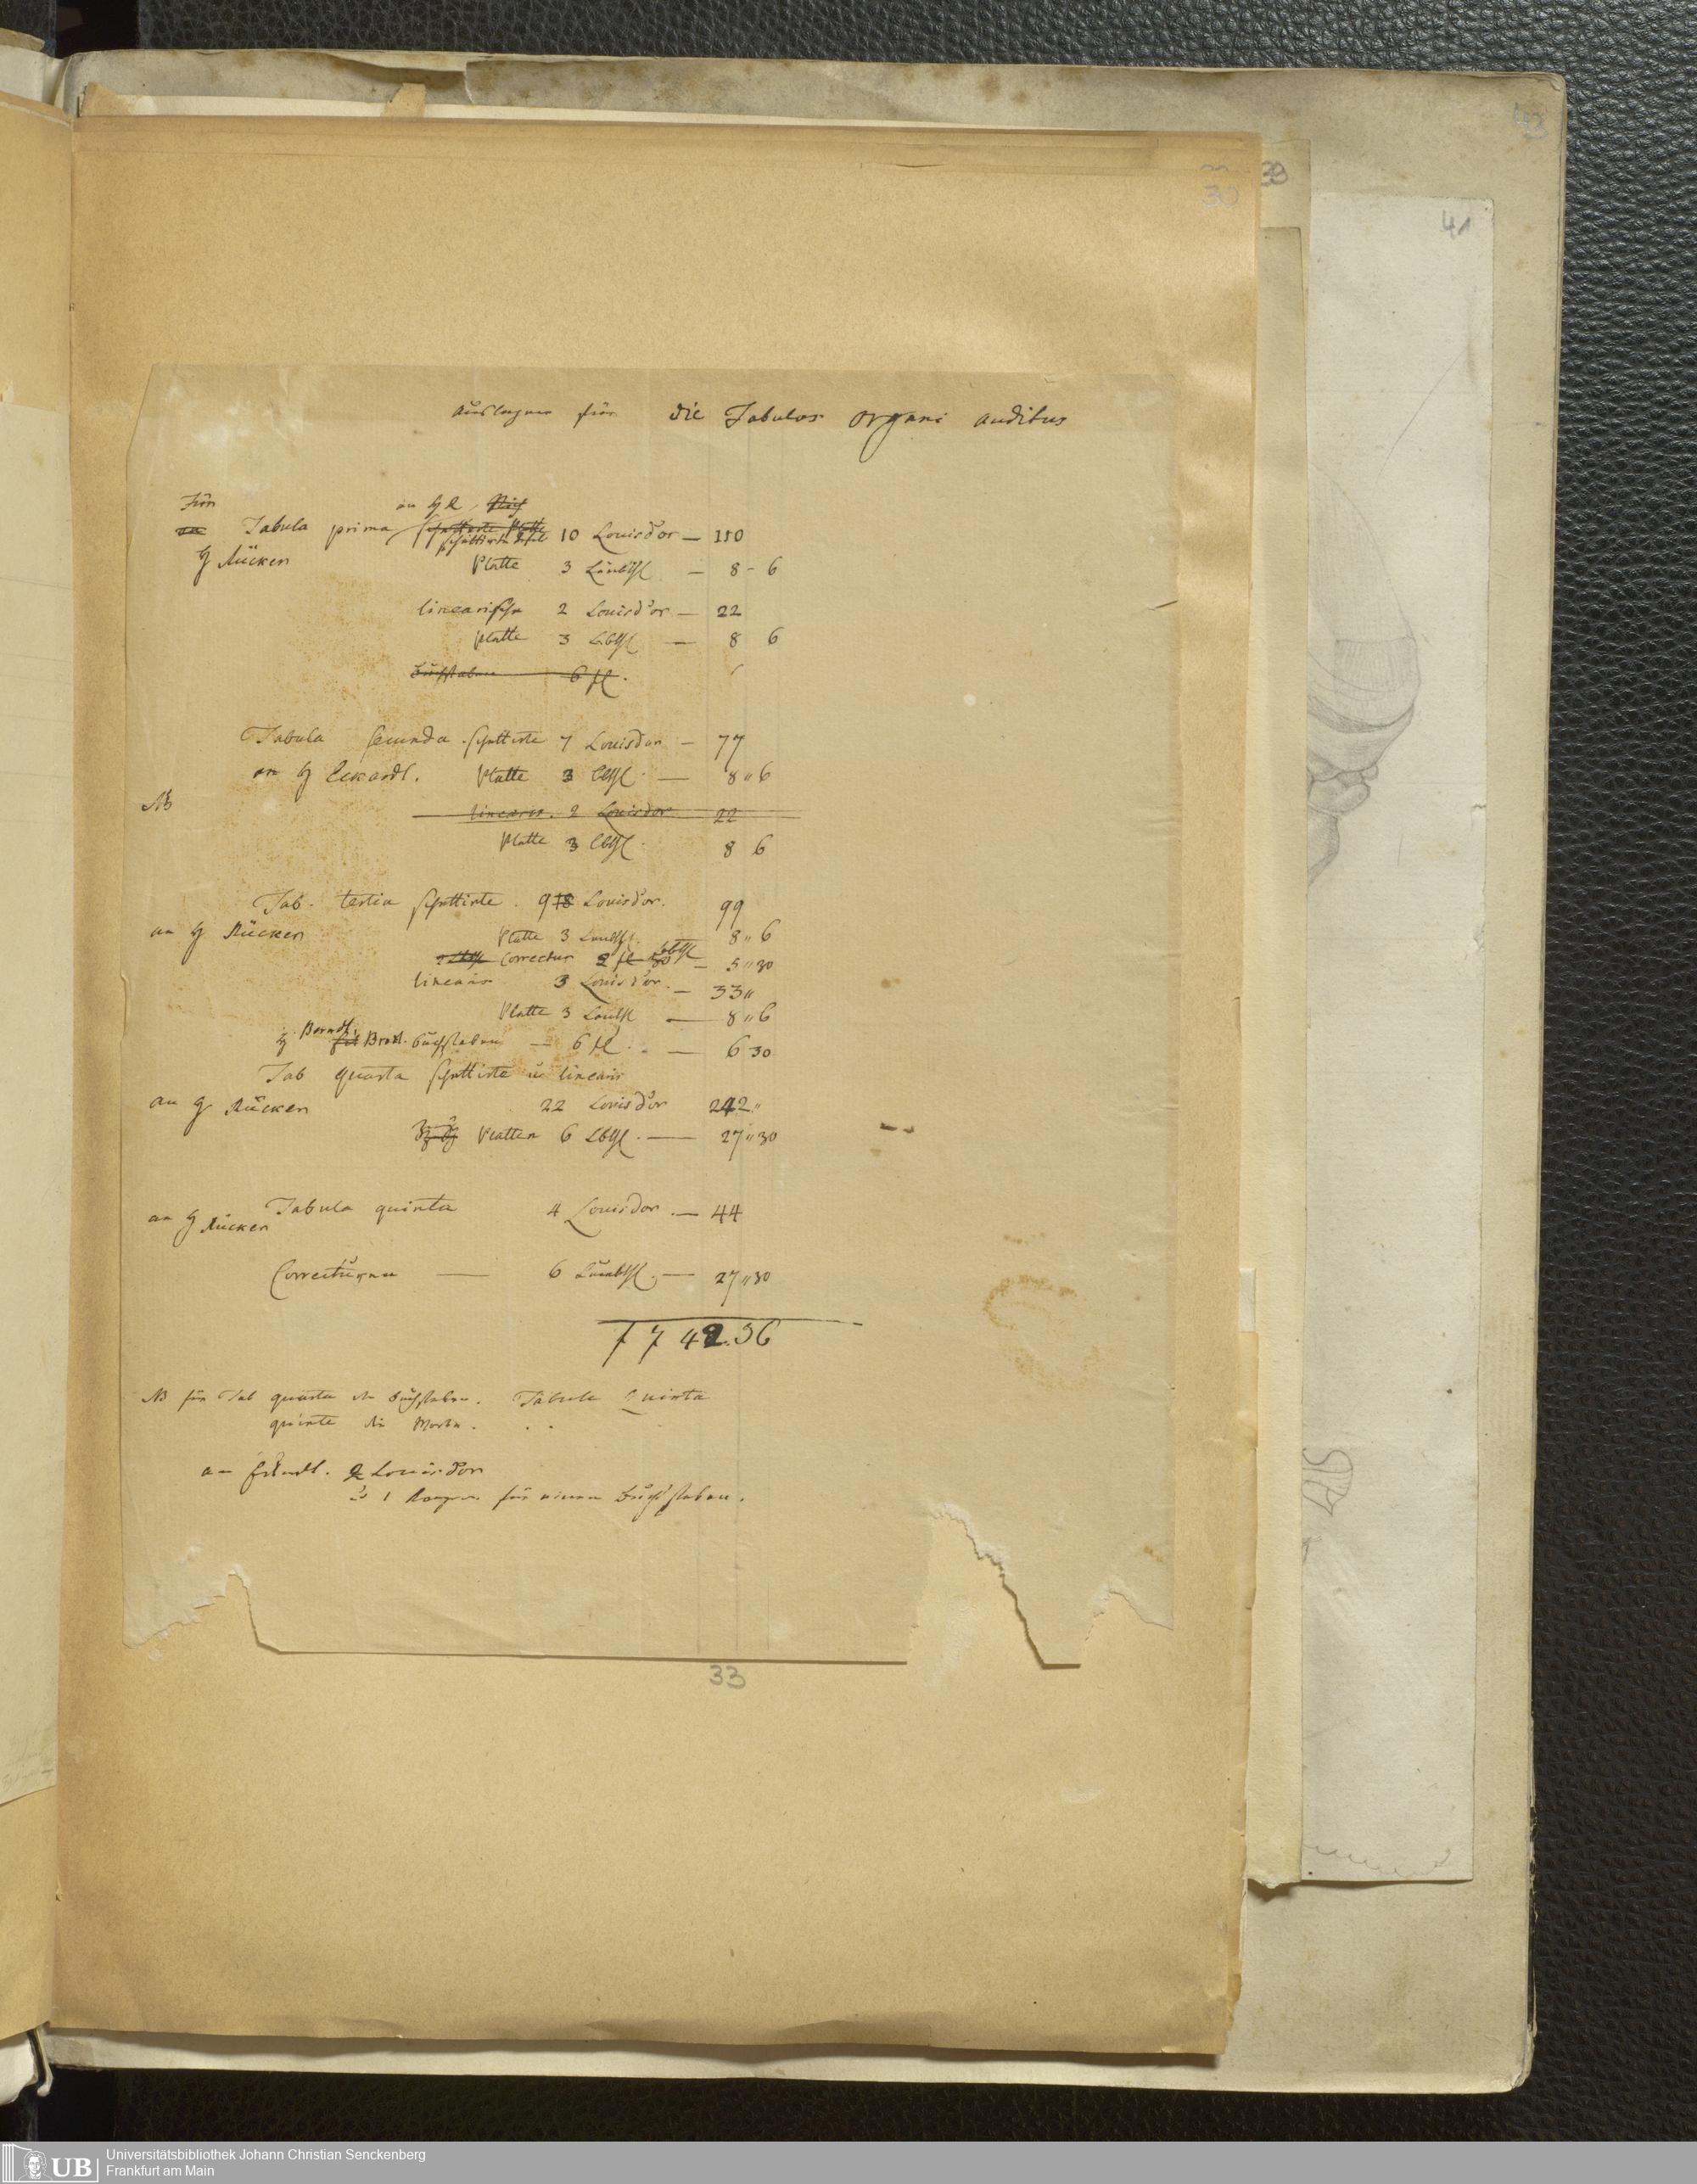 43
39
30
41
Auslagen für die Tabulas organi auditus
Für an H
Tabula prima schattirte Platte 10 Louisd'or — 110
H Rücken
Platte 3 Laubthl — 8 - 6
linearische 2 Louisd'or — 22
Platte 3 Lbthl — 8 6
Buchstaben 6 fl.
Tabula secunda schattirte 7 Louisdor — 77
an H Eckardt. Platte 3 Lbthl. — 8 " 6
NB
linearis. 2 Louisdor 22
Platte 3 Lbthl. 8 6
Tab. tertia schattirte. 9 18 Louisd'or. 99
an H Rücken
Platte 3 Laubthl. 8 " 6
Correctur 2 Lbthl — 5 " 30
linear 3 Louisd'or. — 33 "
Platte 3 Laubthl — 8 " 6
H Berndt. Buchstaben — 6 fl. — 6 30
Tab quarta schattirte u linear
an H Rücken 22 Louisd'or 242 "
Platten 6 Lbthl. — 27 " 30
Tabula quinta 4 Louisdor. — 44
an H Rücken
Correcturen — 6 Laubthl. — 27 " 30
7 7 42.36
NB für Tab quarta die Buchstaben. Tabula Quinta
quinte die Worte.
an 2 Louisdor
u 1 für einen Buchstaben.
33
UB
Universitätsbibliothek Johann Christian Senckenberg
Frankfurt am Main